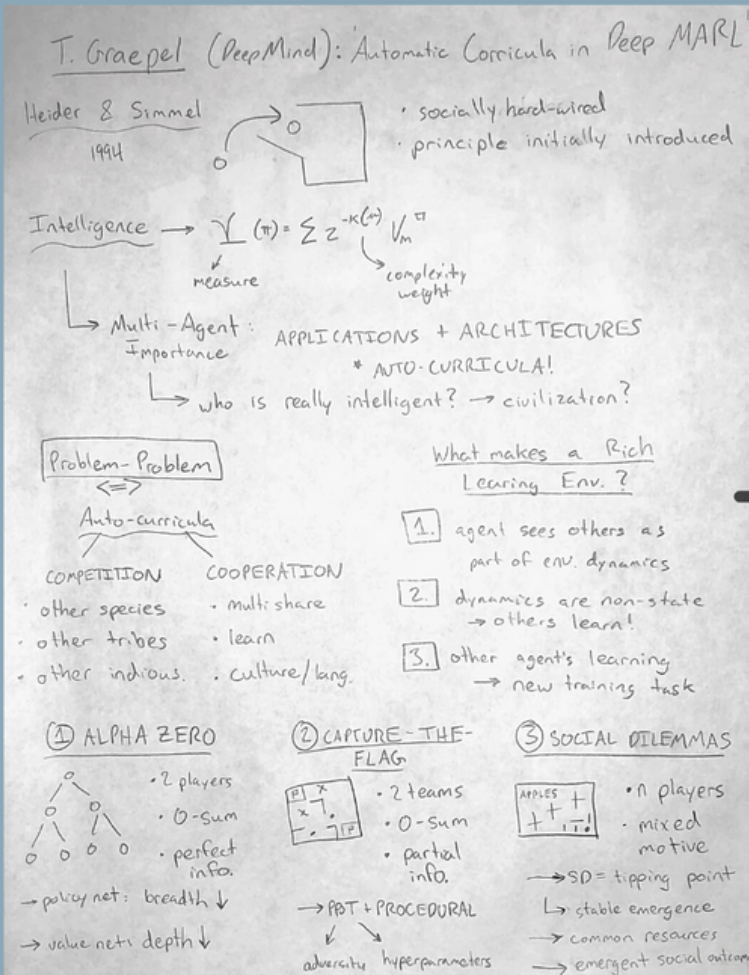 T. Graepel (DeepMind): Automatic Corricula in Deep MARL
Heider & Simmel
1994
• socially hard-wired
• principle initially introduced
Intelligence → Υ(π) = Σ 2^-K(μ) V_m^π
measure
complexity
weight
Multi-Agent:
Importance
APPLICATIONS + ARCHITECTURES
* AUTO-CURRICULA!
who is really intelligent? → civilization?
Problem-Problem
<=>
Auto-curricula
COMPETITION
• other species
• other tribes
• other indious.
COOPERATION
• multi share
• learn
• culture/lang.
What makes a Rich
Learing Env.?
1. agent sees others as
part of env. dynamics
2. dynamics are non-state
→ others learn!
3. other agent's learning
→ new training task
① ALPHA ZERO
• 2 players
• 0-sum
• perfect
info.
→ policy net: breadth ↓
→ value net: depth ↓
② CAPTURE-THE-
FLAG
• 2 teams
• 0-sum
• partial
info.
→ PBT + PROCEDURAL
adversity hyperparameters
③ SOCIAL DILEMMAS
APPLES
• n players
• mixed
motive
→ SD = tipping point
↳ stable emergence
→ common resources
→ emergent social outcom